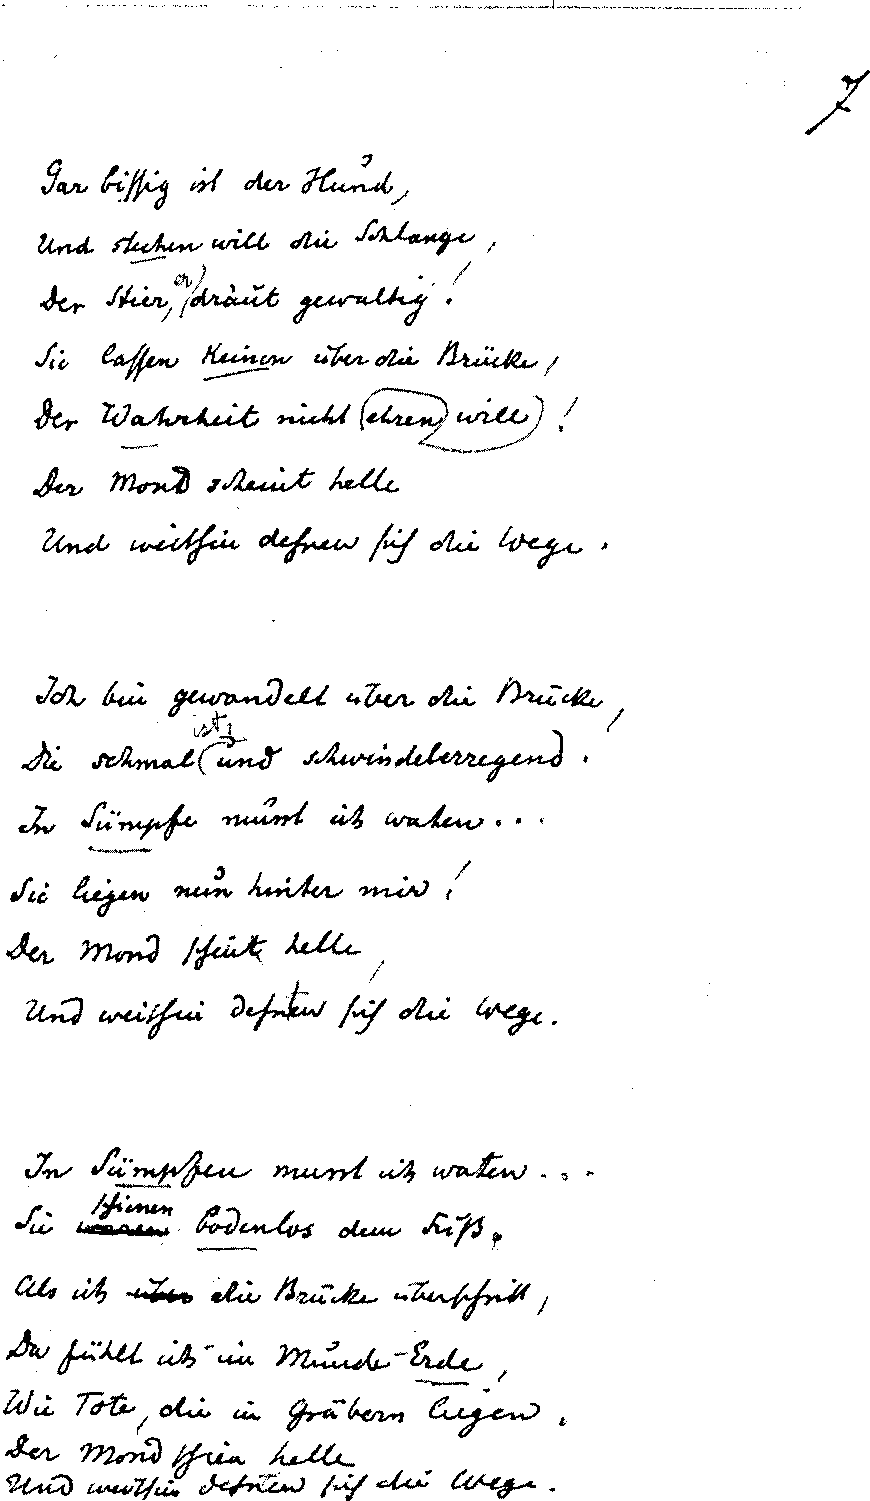 7
Gar bissig ist der Hund,
Und stechen will die Schlange,
Der Stier, er dräut gewaltig!
Sie lassen Keinen über die Brücke,
Der Wahrheit nicht ehren will!
Der Mond scheint helle
Und weithin dehnen sich die Wege.
Ich bin gewandelt über die Brücke,
ist,
Die schmal und schwindelerregend.
In Sümpfe musst ich waten...
Sie liegen nun hinter mir!
Der Mond scheint helle,
Und weithin dehnten sich die Wege.
In Sümpfen musst ich waten...
schienen
Sie waren bodenlos dem Fuß.
Als ich über die Brücke überschritt,
Da fühlt ich im Munde Erde,
Wie Tote, die in Gräbern liegen.
Der Mond schien helle
Und weithin dehnten sich die Wege.